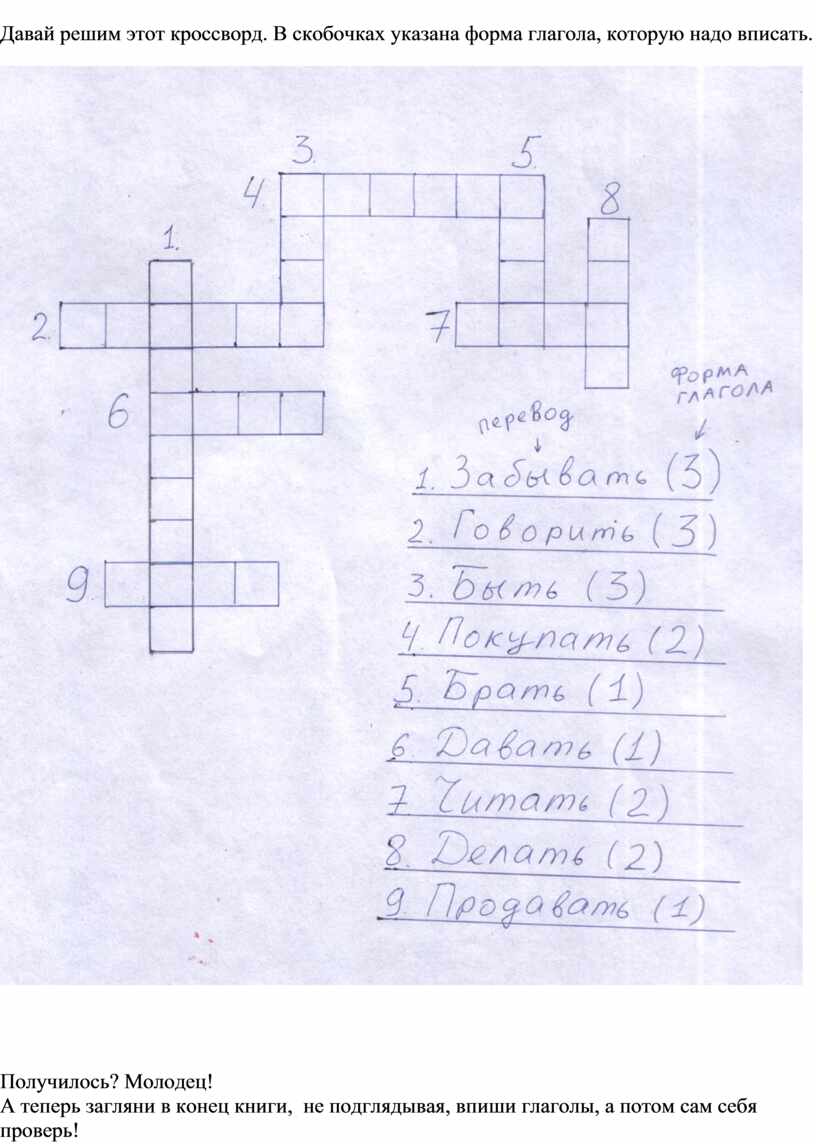 Давай решим этот кроссворд. В скобочках указана форма глагола, которую надо вписать.
3. 5.
4. 8
1.
2. 7
ФОРМА
ГЛАГОЛА
6 перевод
1. Забывать (3)
2. Говорить (3)
9. 3. Быть (3)
4. Покупать (2)
5. Брать (1)
6. Давать (1)
7 Читать (2)
8. Делать (2)
9. Продавать (1)
Получилось? Молодец!
А теперь загляни в конец книги, не подглядывая, впиши глаголы, а потом сам себя
проверь!